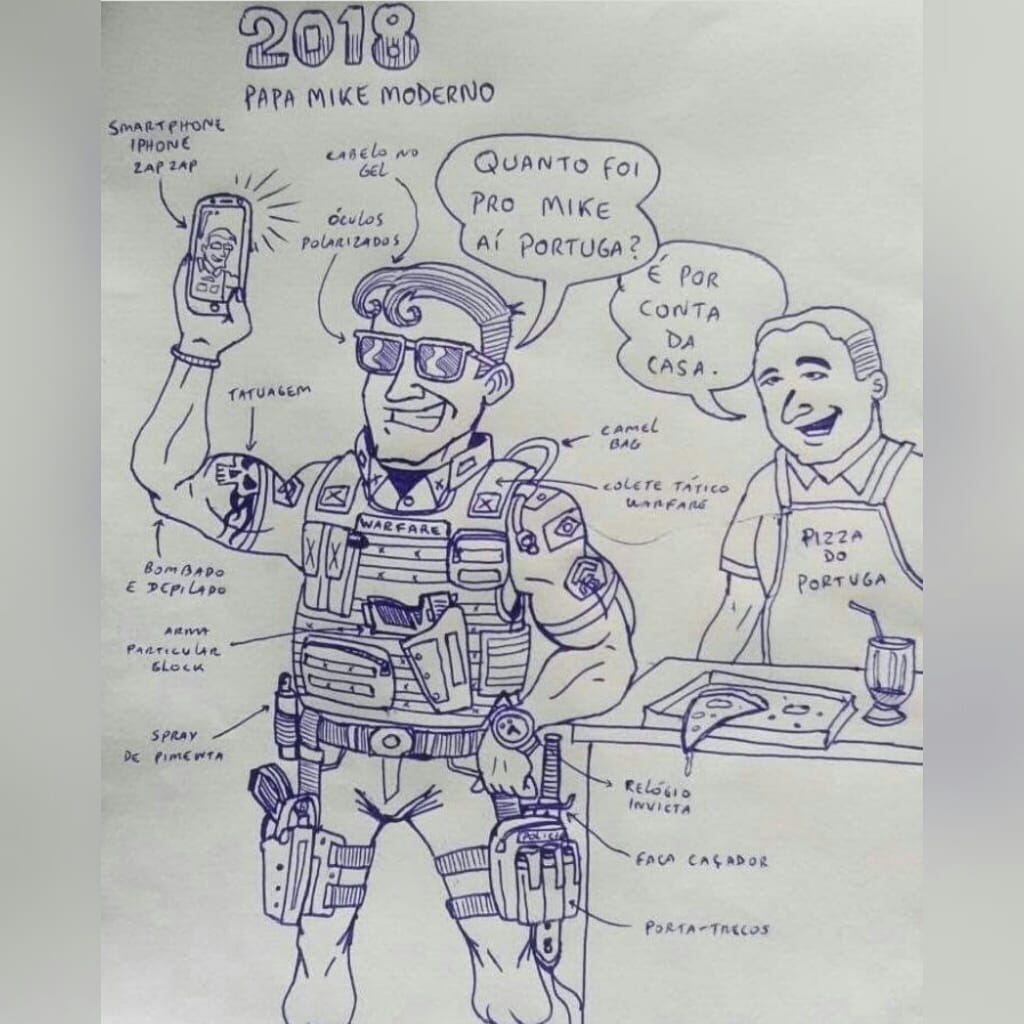 2018
PAPA MIKE MODERNO
SMARTPHONE
IPHONE
ZAP ZAP
CABELO NO
GEL
ÓCULOS
POLARIZADOS
QUANTO FOI
PRO MIKE
AÍ PORTUGA?
É POR
CONTA
DA
CASA.
TATUAGEM
CAMEL
BAG
COLETE TÁTICO
WARFARE
WARFARE
PIZZA
DO
PORTUGA
BOMBADO
E DEPILADO
ARMA
PARTICULAR
GLOCK
SPRAY
DE PIMENTA
RELÓGIO
INVICTA
POLICIA
FACA CAÇADOR
PORTA-TRECOS